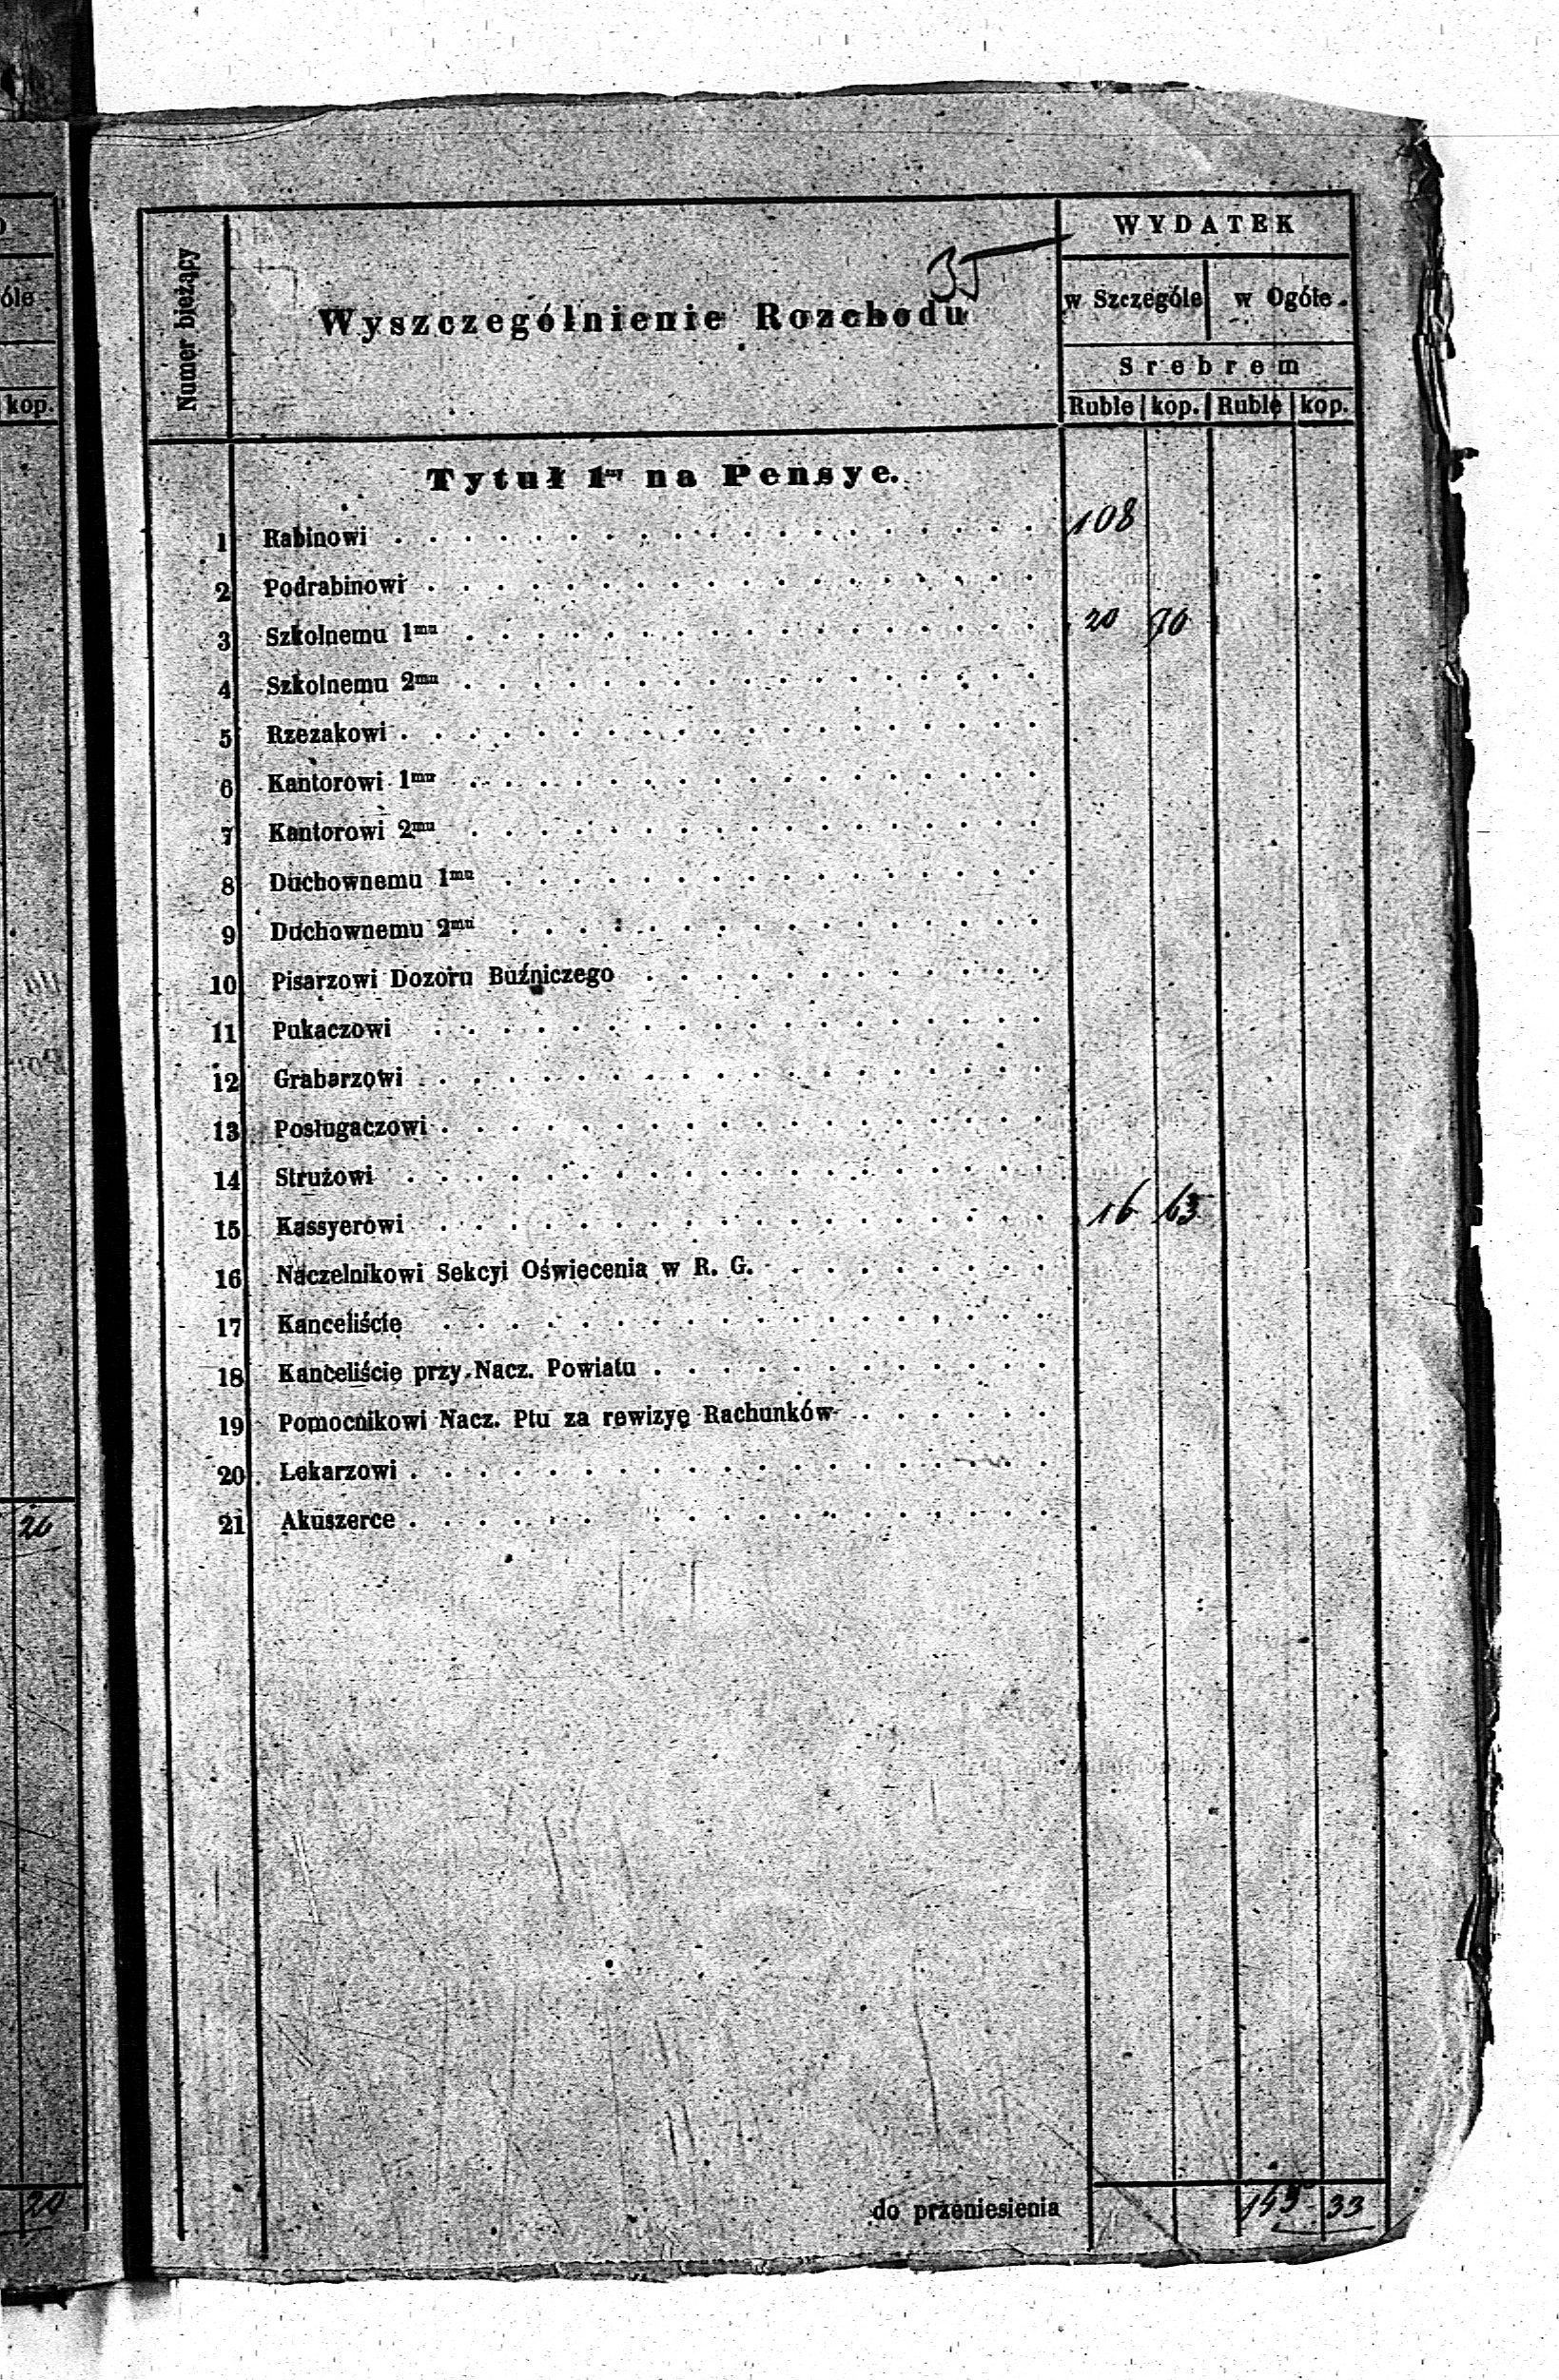 óle
kop.
20
20
35
Numer bieżący
Wyszczególnienie Rozchodu
WYDATEK
w Szczególe w Ogóle
Srebrem
Ruble kop. Ruble kop.
Tytuł 1ᵚ na Pensye.
1 Rabinowi 108
2 Podrabinowi
3 Szkolnemu 1mu 20 70
4 Szkolnemu 2mu
5 Rzezakowi
6 Kantorowi 1mu
7 Kantorowi 2mu
8 Duchownemu 1mu
9 Duchownemu 2mu
10 Pisarzowi Dozoru Buźniczego
11 Pukaczowi
12 Grabarzowi
13 Posługaczowi
14 Strużowi
15 Kassyerowi 16 63
16 Naczelnikowi Sekcyi Oświecenia w R. G.
17 Kanceliście
18 Kanceliście przy Nacz. Powiatu
19 Pomocnikowi Nacz. Ptu za rewizyę Rachunków
20 Lekarzowi
21 Akuszerce
do przeniesienia 145 33